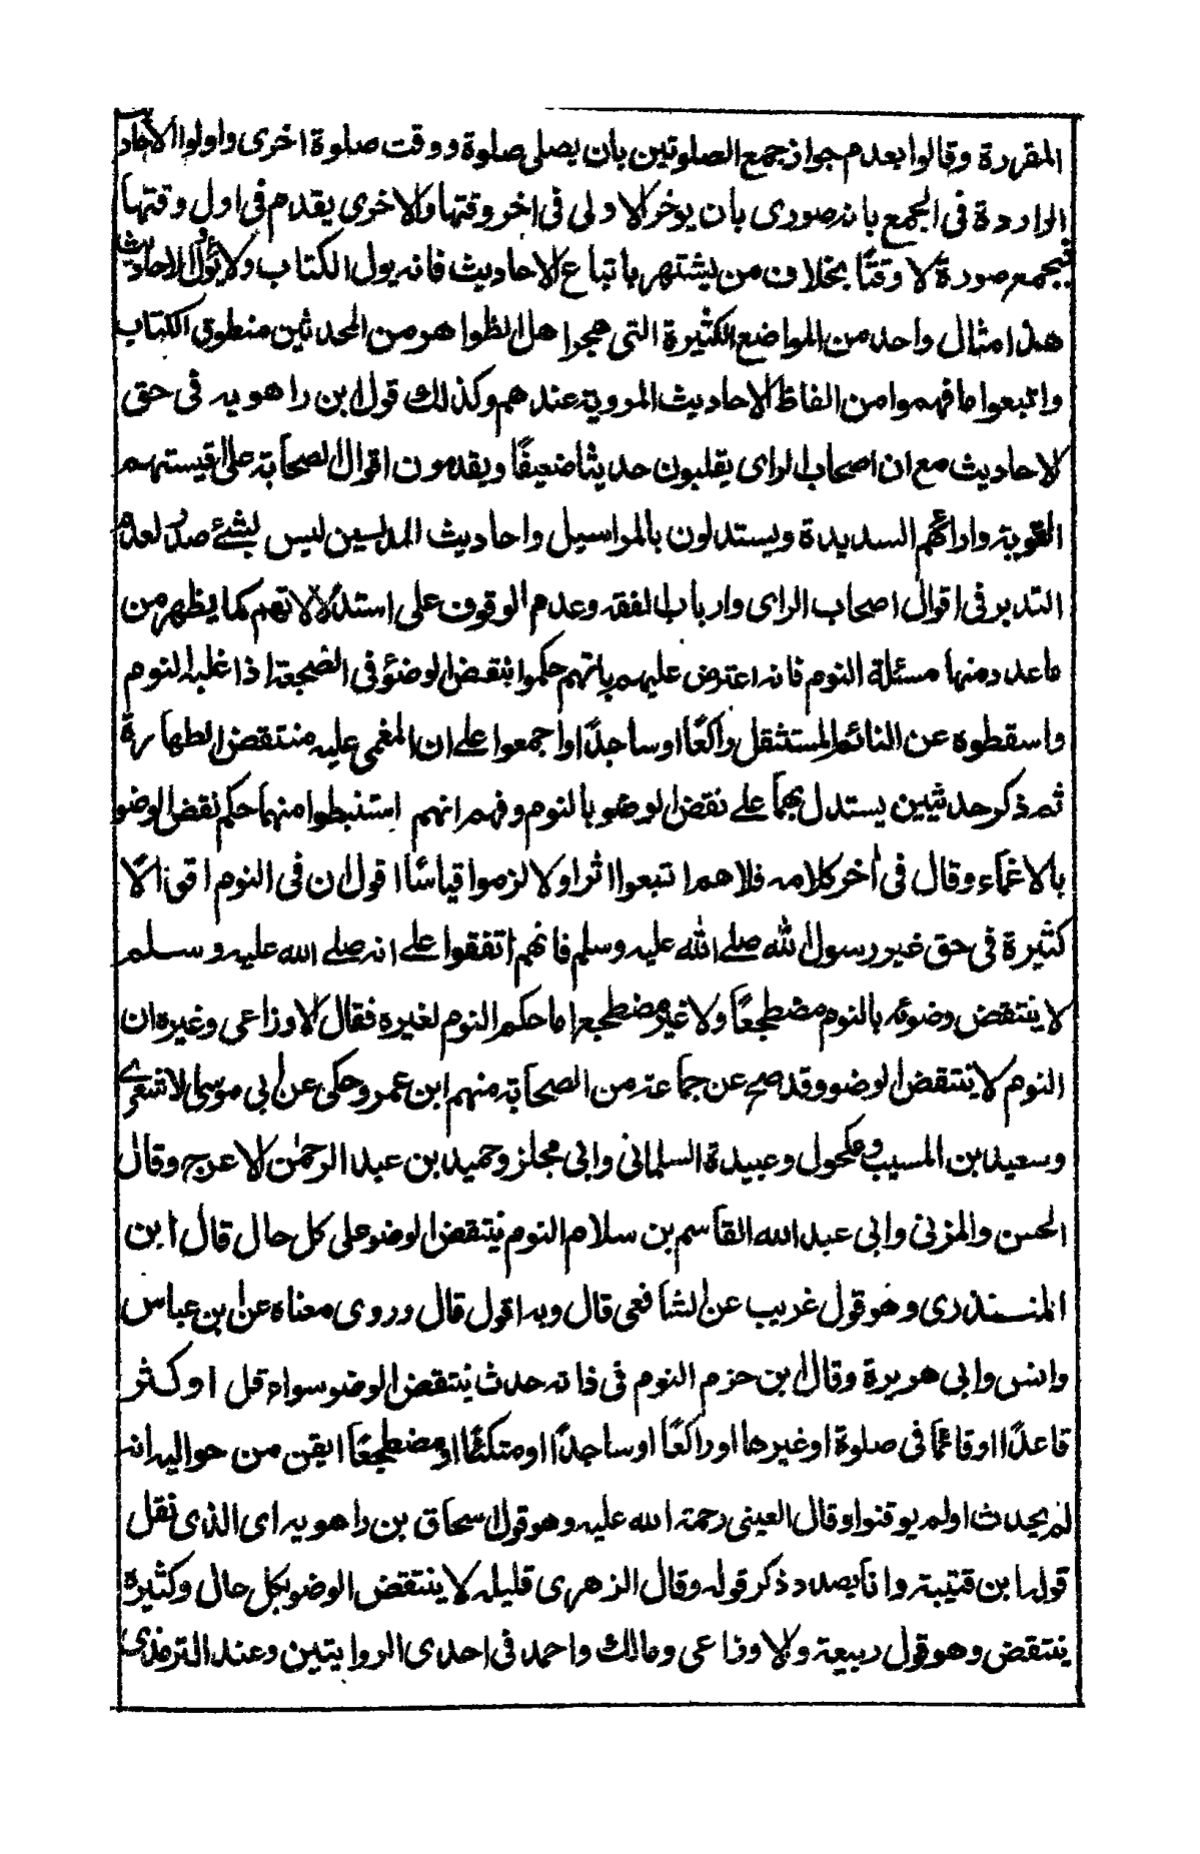 المقررة وقالوا بعدم جواز جمع الصلوتين بان يصلى صلوة ووقت صلوة اخرى واولوا الاحاديث
الواردة فى الجمع بانه صورى بان يوخر الاولى فى اخر وقتها والاخرى يقدم فى اول وقتها
فيجمع صورة لا وقتًا بخلاف من يشتهر باتباع الاحاديث فانه يول الكتاب ولا يؤل الاحاديث
هذا مثال واحد من المواضع الكثيرة التى هجرا هل الظوا هو من المحدثين منطوق الكتاب
واتبعوا ما فهموا من الفاظ الاحاديث المروية عندهم وكذلك قول ابن راهويه فى حق
الاحاديث مع ان اصحاب الراى يقلبون حديثا ضعيفًا ويقدمون اقوال الصحابة على اقيستهم
القوية وارائهم السديدة ويستدلون بالمراسيل واحاديث المدلسين ليس بشئ صدر لعدم
التدبر فى اقوال اصحاب الراى وارباب الفقه وعدم الوقوف على استدلالاتهم كما يظهر من
ماعدد منها مسئلة النوم فانه اعترض عليهم بانهم حكموا بنقض الوضوء فى الضجعة اذا غلبه النوم
واسقطوه عن النائم المستثقل راكعًا اوساجدًا واجمعوا على ان المغمى عليه منتقض الطهارة
ثم ذكر حديثين يستدل بهما على نقض الوضو بالنوم وفهم انهم استنبطوا منهما حكم نقض الوضو
بالاغماء وقال فى أخر كلامه فلاهم اتبعوا اثرا ولا لزموا قياسًا اقول ان فى النوم اقوالاً
كثيرة فى حق غير رسول الله صلى الله عليه وسلم فانهم اتفقوا على انه صلى الله عليه وسلم
لاينتقض وضوئه بالنوم مضطجعًا ولا غير مضطجع اما حكم النوم لغيره فقال الاوزاعى وغيره ان
النوم لا ينتقض الوضو وقد صح عن جماعة من الصحابة منهم ابن عمر وحكى عن ابى موسى الاشعرى
وسعيد بن المسيب ومكحول وعبيدة السلمانى وابى مجلز وحميد بن عبد الرحمٰن الاعرج وقال
الحسن والمزنى وابى عبد الله القاسم بن سلام النوم ينتقض الوضو على كل حال قال ابن
المنسنذرى وهو قول غريب عن الشافعى قال وبه اقول قال وروى معناه عن ابن عباس
وانس وابى هريرة وقال ابن حزم النوم فى ذاته حدث ينتقض الوضو سواء قل اوكثر
قاعدًا اوقائما فى صلوة اوغيرها اوراكعًا اوساجدًا اومتكئًا او مضطجعًا ايقن من حواليه انه
لم يحدث اولم يوقنوا وقال العينى رحمة الله عليه وهو قول اسحاق بن راهويه اى الذى نقل
قوله ابن قتيبة وانا بصدد ذكر قوله وقال الزهرى قليله لا ينتقض الوضو بكل حال وكثيره
ينتقض وهو قول ربيعة والاوزاعى ومالك واحمد فى احدى الروايتين وعند الترمذى